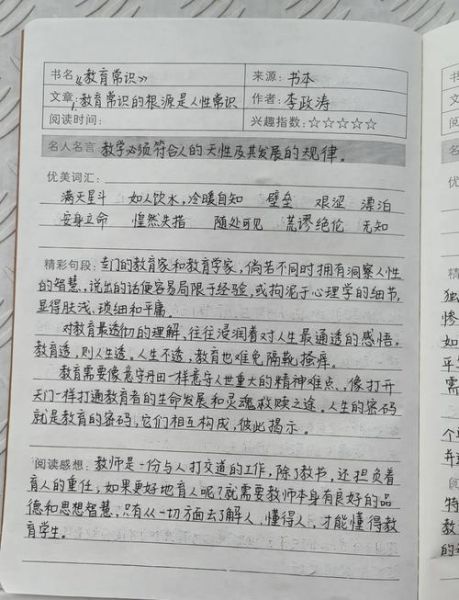 书名:《教育常识》 来源: 书本
文章:教育常识的根源是人性常识 作者:李政涛
阅读时间: 兴趣指数:☆☆☆☆☆
名人名言 教学必须符合人的天性及其发展的规律。
优美词汇:
满天星斗 如人饮水,冷暖自知 壁垒 艰涩 漂泊
安身立命 惶然失措 随处可见 荒谬绝伦 无知
精彩句段: 专门的教育家和教育学家,倘若不同时拥有洞察人性
的智慧,说出的话便容易局限于经验,或拘泥于心理学的细节,
显得肤浅、琐细和平庸。
对教育最透彻的理解,往往浸润着对人生最通透的感悟。
教育透,则人生透。人生不透,教育也难免隔靴搔痒。
教育需要像意守丹田一样意守人世重大的精神难点、像打开
天门一样打通教育者的生命发展和灵魂救赎之途。人生的密码
就是教育的密码,它们相互构成,彼此揭示。
阅读感想: 教师是一份与人打交道的工作,除了教书,还担负着
育人的重任,如果更好地育人呢?就需要教师本身有良好的品
德和思想智慧,只有从一切方面去了解人,懂得人,才能懂得教
育学生。